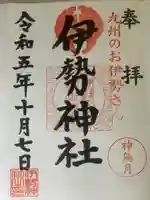 奉拝
九州のお伊勢さん
伊勢神社
神無月
令和五年十月七日